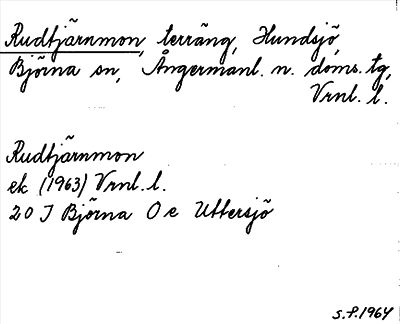 Rudtjärnmon, terräng, Hundsjö,
Björna sn, Ångermanl. n. doms. tg,
Vrnl. l.
Rudtjärnmon
ek (1963) Vrnl. l.
20 J Björna O e Uttersjö
s.f. 1964